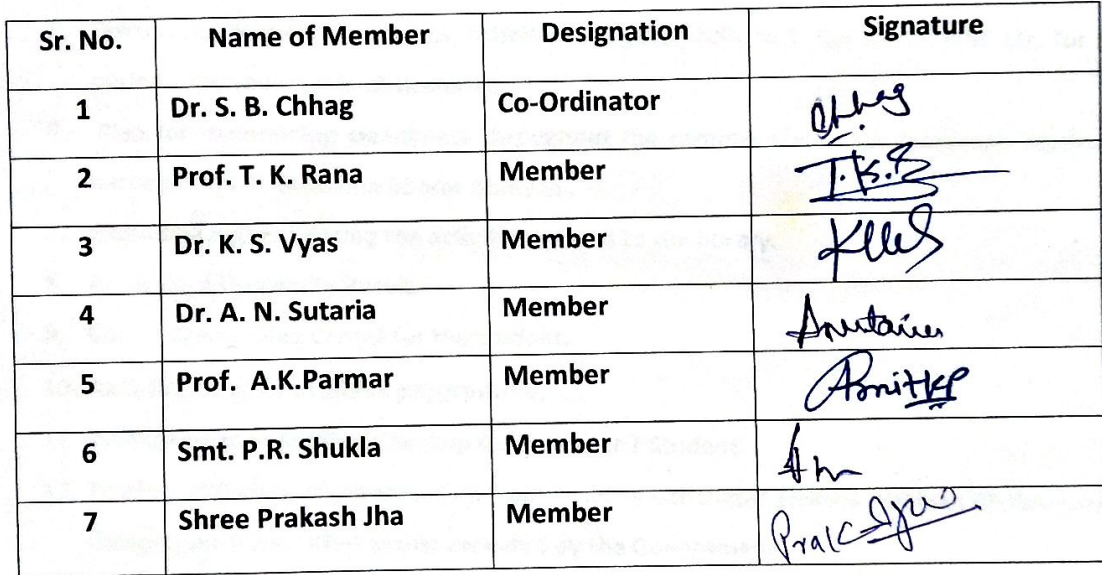 Sr. No. Name of Member Designation Signature
1 Dr. S. B. Chhag Co-Ordinator Chhag
2 Prof. T. K. Rana Member T.K.R
3 Dr. K. S. Vyas Member
4 Dr. A. N. Sutaria Member Ansutaria
5 Prof. A.K.Parmar Member AmitKP
6 Smt. P.R. Shukla Member
7 Shree Prakash Jha Member